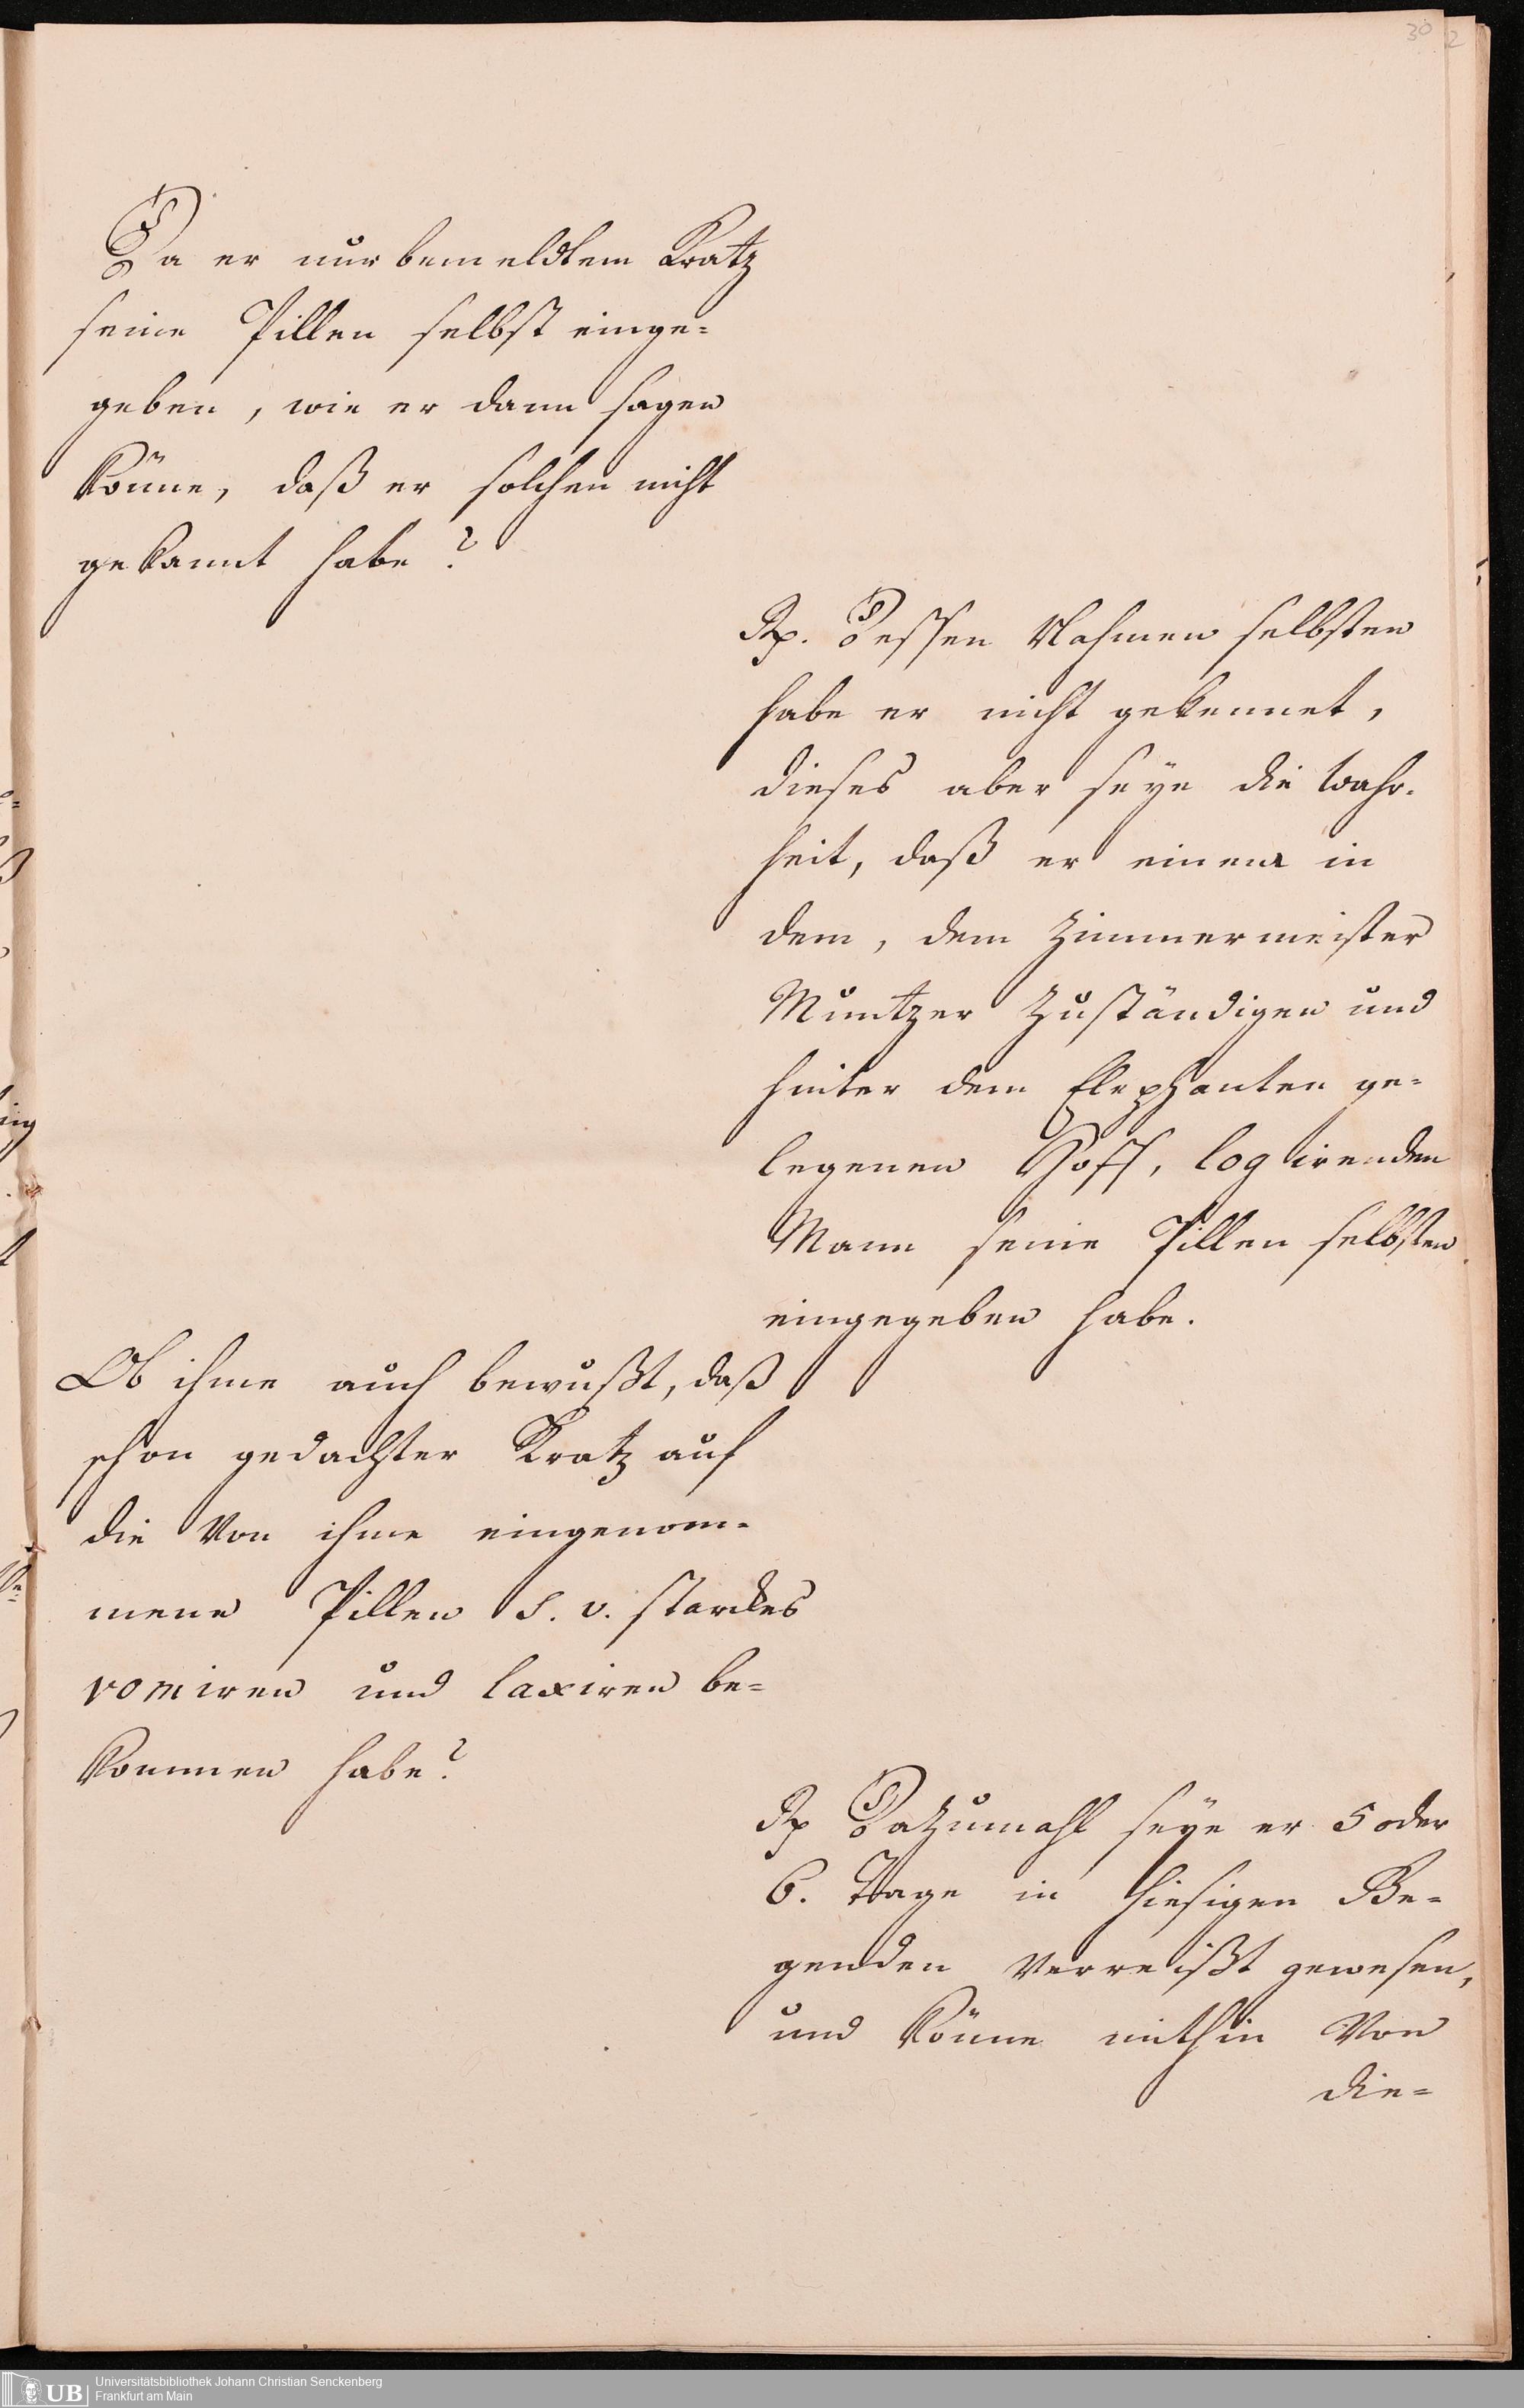 30
2
Da er nur bemeldtem Kratz
seine Pillen selbst einge=
geben, wie er dann sagen
könne, daß er solchen nicht
gekannt habe?
Rp. Dessen Nahmen selbsten
habe er nicht gekennet,
dieses aber seye die Wahr-
heit, daß er einem in
dem, dem Zimmermeister
Muntzer zuständigen und
hinter dem Elephanten ge=
legenen Hoff, logirenden
Mann seine Pillen selbsten
eingegeben habe.
Ob ihme auch bewußt, daß
schon gedachter Kratz auf
die von ihme eingenom-
mene Pillen S. v. starckes
vomiren und laxiren be=
kommen habe?
Rp Dazumahl seye er 5 oder
6. Tage in hiesigen Ge=
genden verreißt gewesen,
und könne mithin von
die=
UB
Universitätsbibliothek Johann Christian Senckenberg
Frankfurt am Main